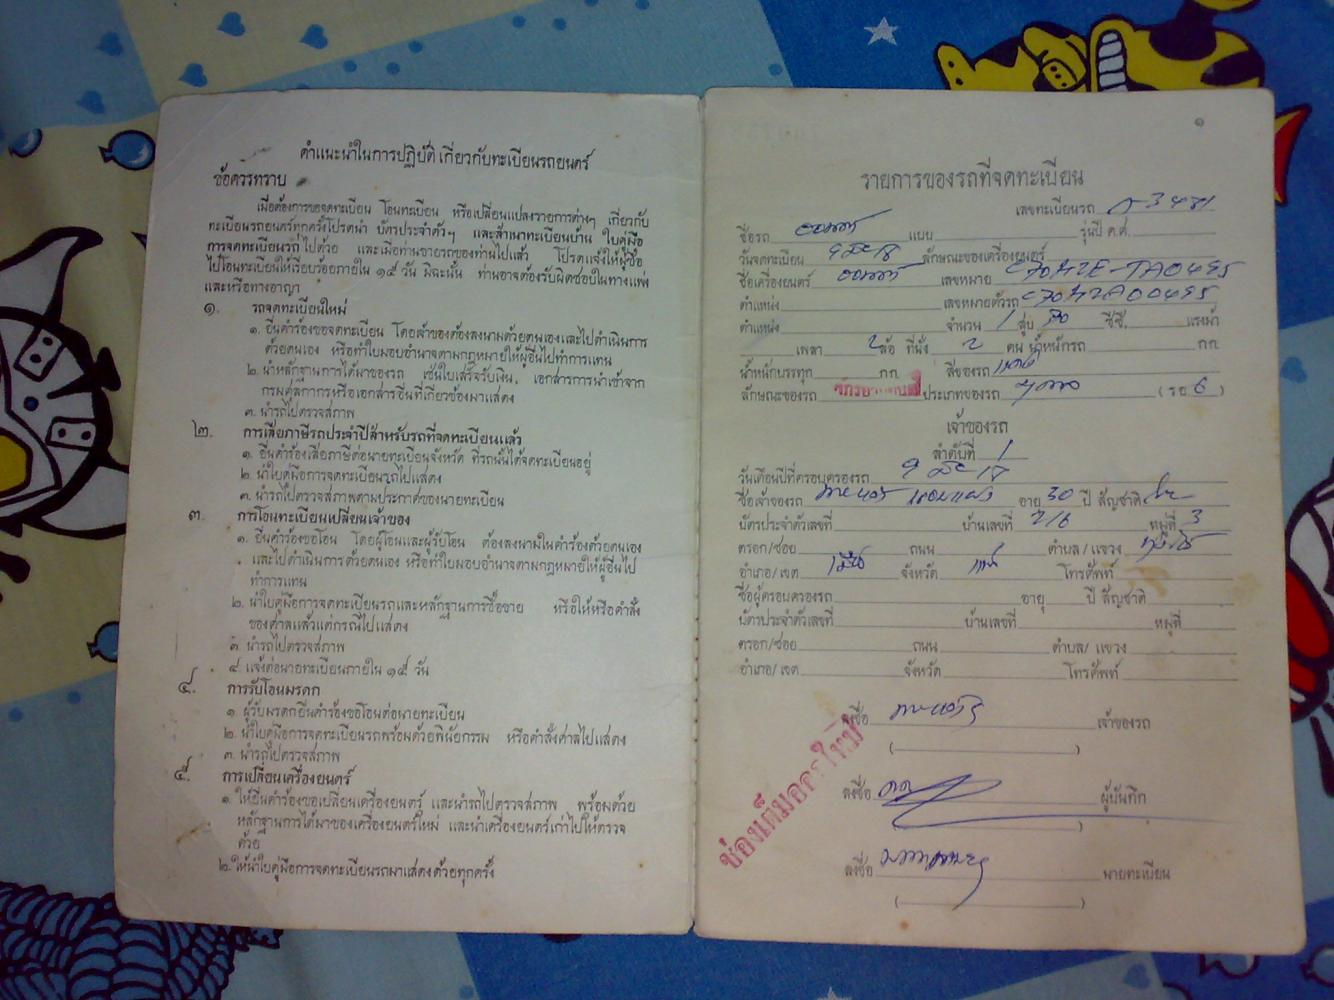 คำแนะนำในการปฏิบัติเกี่ยวกับทะเบียนรถยนตร์
ข้อควรทราบ
เมื่อต้องการขอจดทะเบียน โอนทะเบียน หรือเปลี่ยนแปลงรายการต่างๆ เกี่ยวกับ
ทะเบียนรถยนตร์ทุกครั้งโปรดนำ บัตรประจำตัวฯ และสำเนาทะเบียนบ้าน ใบคู่มือ
การจดทะเบียนรถไปด้วย และเมื่อท่านขายรถของท่านไปแล้ว โปรดแจ้งให้ผู้ซื้อ
ไปโอนทะเบียนให้เรียบร้อยภายใน ๑๕ วัน มิฉะนั้น ท่านอาจต้องรับผิดชอบในทางแพ่ง
และหรือทางอาญา
๑. รถจดทะเบียนใหม่
๑. ยื่นคำร้องขอจดทะเบียน โดยเจ้าของต้องลงนามด้วยตนเองและไปดำเนินการ
ด้วยตนเอง หรือทำใบมอบอำนาจตามกฎหมายให้ผู้อื่นไปทำการแทน
๒. นำหลักฐานการได้มาของรถ เช่นใบเสร็จรับเงิน, เอกสารการนำเข้าจาก
กรมศุลกากรหรือเอกสารอื่นที่เกี่ยวข้องมาแสดง
๓. นำรถไปตรวจสภาพ
๒. การเสียภาษีรถประจำปีสำหรับรถที่จดทะเบียนแล้ว
๑. ยื่นคำร้องเสียภาษีต่อนายทะเบียนจังหวัด ที่รถนั้นได้จดทะเบียนอยู่
๒. นำใบคู่มือการจดทะเบียนรถไปแสดง
๓. นำรถไปตรวจสภาพตามประกาศของนายทะเบียน
๓. การโอนทะเบียนเปลี่ยนเจ้าของ
๑. ยื่นคำร้องขอโอน โดยผู้โอนและผู้รับโอน ต้องลงนามในคำร้องด้วยตนเอง
และไปดำเนินการด้วยตนเอง หรือทำใบมอบอำนาจตามกฎหมายให้ผู้อื่นไป
ทำการแทน
๒. นำใบคู่มือการจดทะเบียนรถและหลักฐานการซื้อขาย หรือให้หรือคำสั่ง
ของศาลแล้วแต่กรณีไปแสดง
๓. นำรถไปตรวจสภาพ
๔. แจ้งต่อนายทะเบียนภายใน ๑๕ วัน
๔. การรับโอนมรดก
๑. ผู้รับมรดกยื่นคำร้องขอโอนต่อนายทะเบียน
๒. นำใบคู่มือการจดทะเบียนรถพร้อมด้วยพินัยกรรม หรือคำสั่งศาลไปแสดง
๓. นำรถไปตรวจสภาพ
๕. การเปลี่ยนเครื่องยนตร์
๑. ให้ยื่นคำร้องขอเปลี่ยนเครื่องยนตร์ และนำรถไปตรวจสภาพ พร้อมด้วย
หลักฐานการได้มาของเครื่องยนตร์ใหม่ และนำเครื่องยนตร์เก่าไปให้ตรวจ
ด้วย
๒. ให้นำใบคู่มือการจดทะเบียนรถมาแสดงด้วยทุกครั้ง
๑
รายการของรถที่จดทะเบียน
เลขทะเบียนรถ
ชื่อรถ ฮอนด้า แบบ รุ่นปี ค.ศ.
วันจดทะเบียน ลักษณะของเครื่องยนตร์
ชื่อเครื่องยนตร์ ฮอนด้า เลขหมาย
ตำแหน่ง เลขหมายตัวรถ
ตำแหน่ง จำนวน 1 สูบ ซี.ซี. แรงม้า
เพลา 2 ล้อ ที่นั่ง 2 คน น้ำหนักรถ กก
น้ำหนักบรรทุก กก สีของรถ แดง
ลักษณะของรถ จักรยานยนต์ ประเภทของรถ (รย 6)
เจ้าของรถ
ลำดับที่ 1
วันเดือนปีที่ครอบครองรถ
ชื่อเจ้าของรถ อายุ 30 ปี สัญชาติ ไทย
บัตรประจำตัวเลขที่ บ้านเลขที่ 2/6 หมู่ที่ 3
ตรอก/ซอย ถนน ตำบล/แขวง
อำเภอ/เขต เมือง จังหวัด โทรศัพท์
ชื่อผู้ครอบครองรถ อายุ ปี สัญชาติ
บัตรประจำตัวเลขที่ บ้านเลขที่ หมู่ที่
ตรอก/ซอย ถนน ตำบล/แขวง
อำเภอ/เขต จังหวัด โทรศัพท์
ลงชื่อ เจ้าของรถ
ลงชื่อ ผู้บันทึก
ลงชื่อ นายทะเบียน
ช่องเต็มออกใหม่